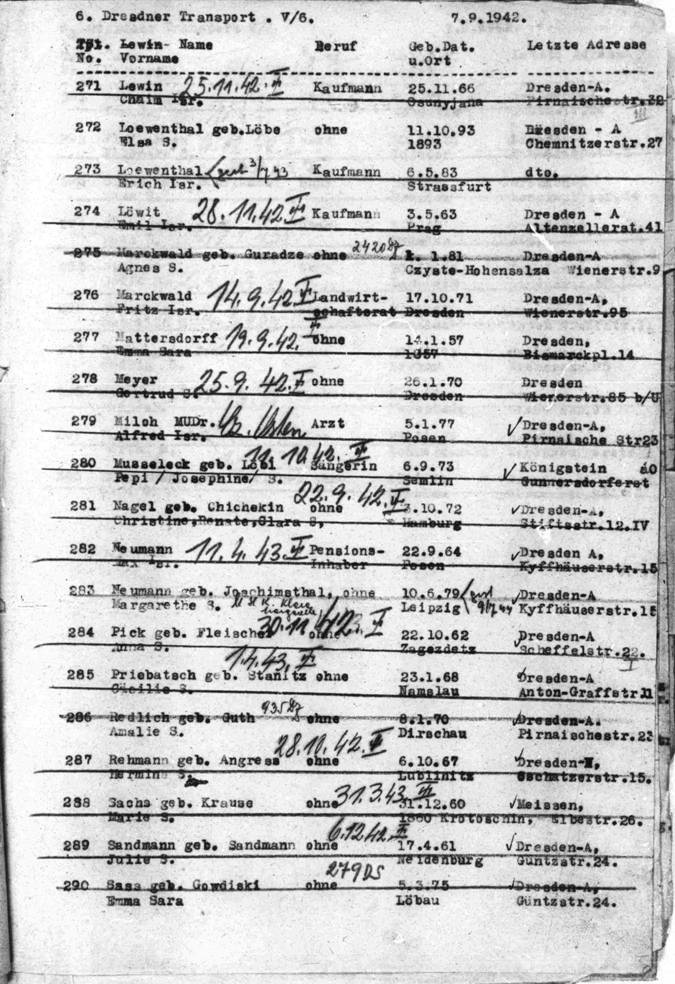 6. Dresdner Transport . V/6. 7.9.1942.
Lewin- Name Beruf Geb.Dat. Letzte Adresse
No. Vorname u.Ort
271 Lewin 25.11.42. Kaufmann 25.11.66 Dresden-A.
Chaim Isr. Osunyjana Pirnaischestr.32
272 Loewenthal geb.Löbe ohne 11.10.93 Dresden - A
Elsa S. 1893 Chemnitzerstr.27
273 Loewenthal Kaufmann 6.5.83 dto.
Erich Isr. Strassfurt
274 Löwit 28.11.42 Kaufmann 3.5.63 Dresden - A
Emil Isr. Prag Altenzellerst.41
275 Marckwald geb. Guradze ohne 1.81 Dresden-A
Agnes S. Czyste-Hohensalza Wienerstr.9
276 Marckwald 14.9.42 Landwirt- 17.10.71 Dresden-A,
Fritz Isr. schaftsrat Dresden Wienerstr.95
277 Mattersdorff 19.9.42. ohne 14.1.57 Dresden,
Emma Sara 1857 Bismarckpl.14
278 Meyer 25.9.42. ohne 26.1.70 Dresden
Gertrud S. Dresden Wienerstr.85 b/U
279 Milch MUDr. Arzt 5.1.77 Dresden-A,
Alfred Isr. Posen Pirnaische Str23
280 Musseleck geb. Löbi 11.10.42. Sängerin 6.9.73 Königstein
Pepi / Josephine/ S. Semlin Gunnersdorferst
281 Nagel geb. Chichekin 22.9.42. ohne 3.10.72 Dresden-A,
Christine,Renate,Clara S, Hamburg Stiftsstr.12.IV
282 Neumann 11.4.43. Pensions- 22.9.64 Dresden A,
Max Isr. Inhaber Posen Kyffhäuserstr.15
283 Neumann geb. Joachimsthal, ohne 10.6.79 Dresden-A
Margarethe S. Leipzig Kyffhäuserstr.15
284 Pick geb. Fleischer 30.11. ohne 22.10.62 Dresden-A
Anna S. Zagezdetz Scheffelstr.22.
I
285 Priebatsch geb. Stanitz 1.4.43. ohne 23.1.68 Dresden-A
Cäcilie S. Namslau Anton-Graffstr.11
286 Redlich geb. Guth ohne 8.1.70 Dresden-A.
Amalie S. Dirschau Pirnaischestr.23
287 Rehmann geb. Angress 28.10.42. ohne 6.10.67 Dresden-N,
Hermine S. Lublinitz Oschatzerstr.15.
288 Sachs geb. Krause ohne 31.3.43 31.12.60 Meissen,
Marie S. 1860 Krotoschin, Elbestr.26.
289 Sandmann geb. Sandmann ohne 6.12.42. 17.4.61 Dresden-A,
Julie S. Neidenburg Güntzstr.24.
290 Sass geb. Gowdiski ohne 5.3.75 Dresden-A,
Emma Sara Löbau Güntzstr.24.